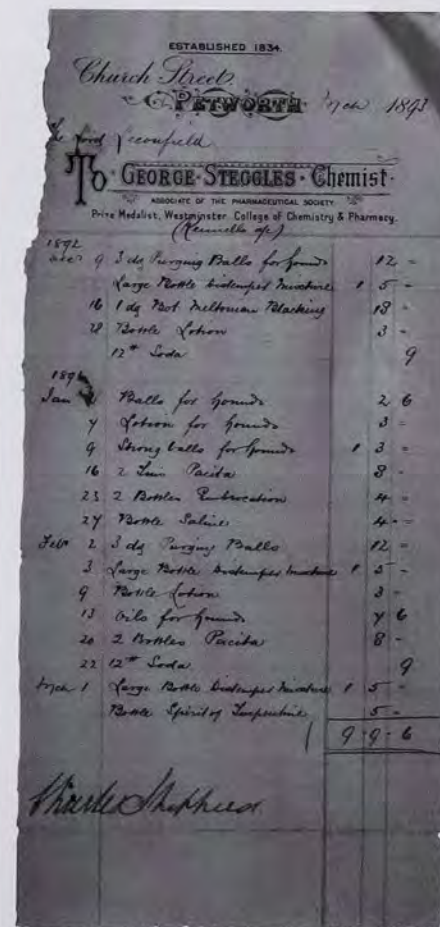 ESTABLISHED 1834.
Church Street,
PETWORTH Mch 1893
The Lord Leconfield
To GEORGE STEGGLES Chemist
ASSOCIATE OF THE PHARMACEUTICAL SOCIETY
Prize Medalist, Westminster College of Chemistry & Pharmacy.
(Kennells a/c)
1892
9 3 dz Purging Balls for hounds 12 =
Large Bottle Distemper Mixture 1 5 -
16 1 dz Bot Meltonian Blacking 18 -
28 Bottle Lotion 3 -
12# Soda 9
Jan Balls for hounds 2 6
4 Lotion for hounds 3 =
9 Strong balls for hounds 1 3 =
16 2 Tins Pacita 8 -
23 2 Bottles Embrocation 4 =
27 Bottle Saline 4 -
Feb 2 3 dz Purging Balls 12 =
3 Large Bottle Distemper Mixture 1 5 -
9 Bottle Lotion 3 -
13 Oils for hounds 7 6
20 2 Bottles Pacita 8 -
22 12# Soda 9
Mch 1 Large Bottle Distemper Mixture 1 5 -
Bottle Spirit of Turpentine 5 -
9 - 9 - 6
Charles Shepherd